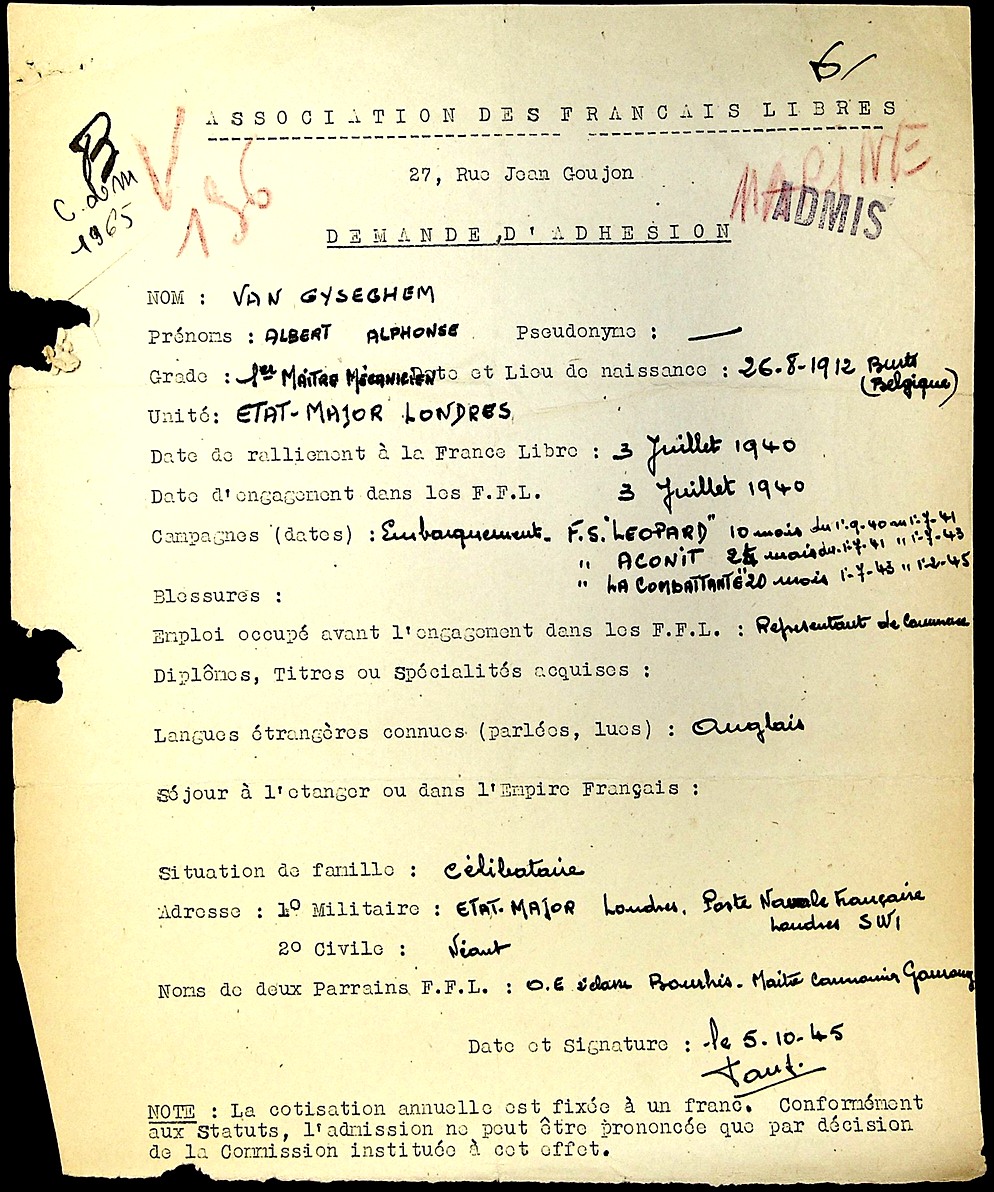 6/
ASSOCIATION DES FRANCAIS LIBRES
27, Rue Jean Goujon
B
C. adm
1965
V
196
MARINE
ADMIS
DEMANDE D'ADHESION
NOM : VAN GYSEGHEM
Prénoms : ALBERT ALPHONSE Pseudonyme : —
Grade : 1er MAITRE MÉCANICIEN Date et Lieu de naissance : 26-8-1912 Burst
(Belgique)
Unité: ETAT-MAJOR LONDRES
Date de ralliement à la France Libre : 3 Juillet 1940
Date d'engagement dans les F.F.L. 3 Juillet 1940
Campagnes (dates) : Embarquement. F.S. "LEOPARD" 10 mois du 1-9-40 au 1-7-41
" ACONIT 24 mois du 1-7-41 " 1-7-43
" LA COMBATTANTE" 20 mois 1-7-43 " 1-2-45
Blessures :
Emploi occupé avant l'engagement dans les F.F.L. : Représentant de Commerce
Diplômes, Titres ou Spécialités acquises :
Langues étrangères connues (parlées, lues) : Anglais
Séjour à l'etanger ou dans l'Empire Français :
Situation de famille : Célibataire
Adresse : 1º Militaire : ETAT-MAJOR Londres. Poste Navale Française
Londres SW1
2º Civile : Néant
Noms de deux Parrains F.F.L. : O.E Bourhis. Maitre
Date et Signature : le 5-10-45
NOTE : La cotisation annuelle est fixée à un franc. Conformément
aux Statuts, l'admission ne peut être prononcée que par décision
de la Commission instituée à cet effet.